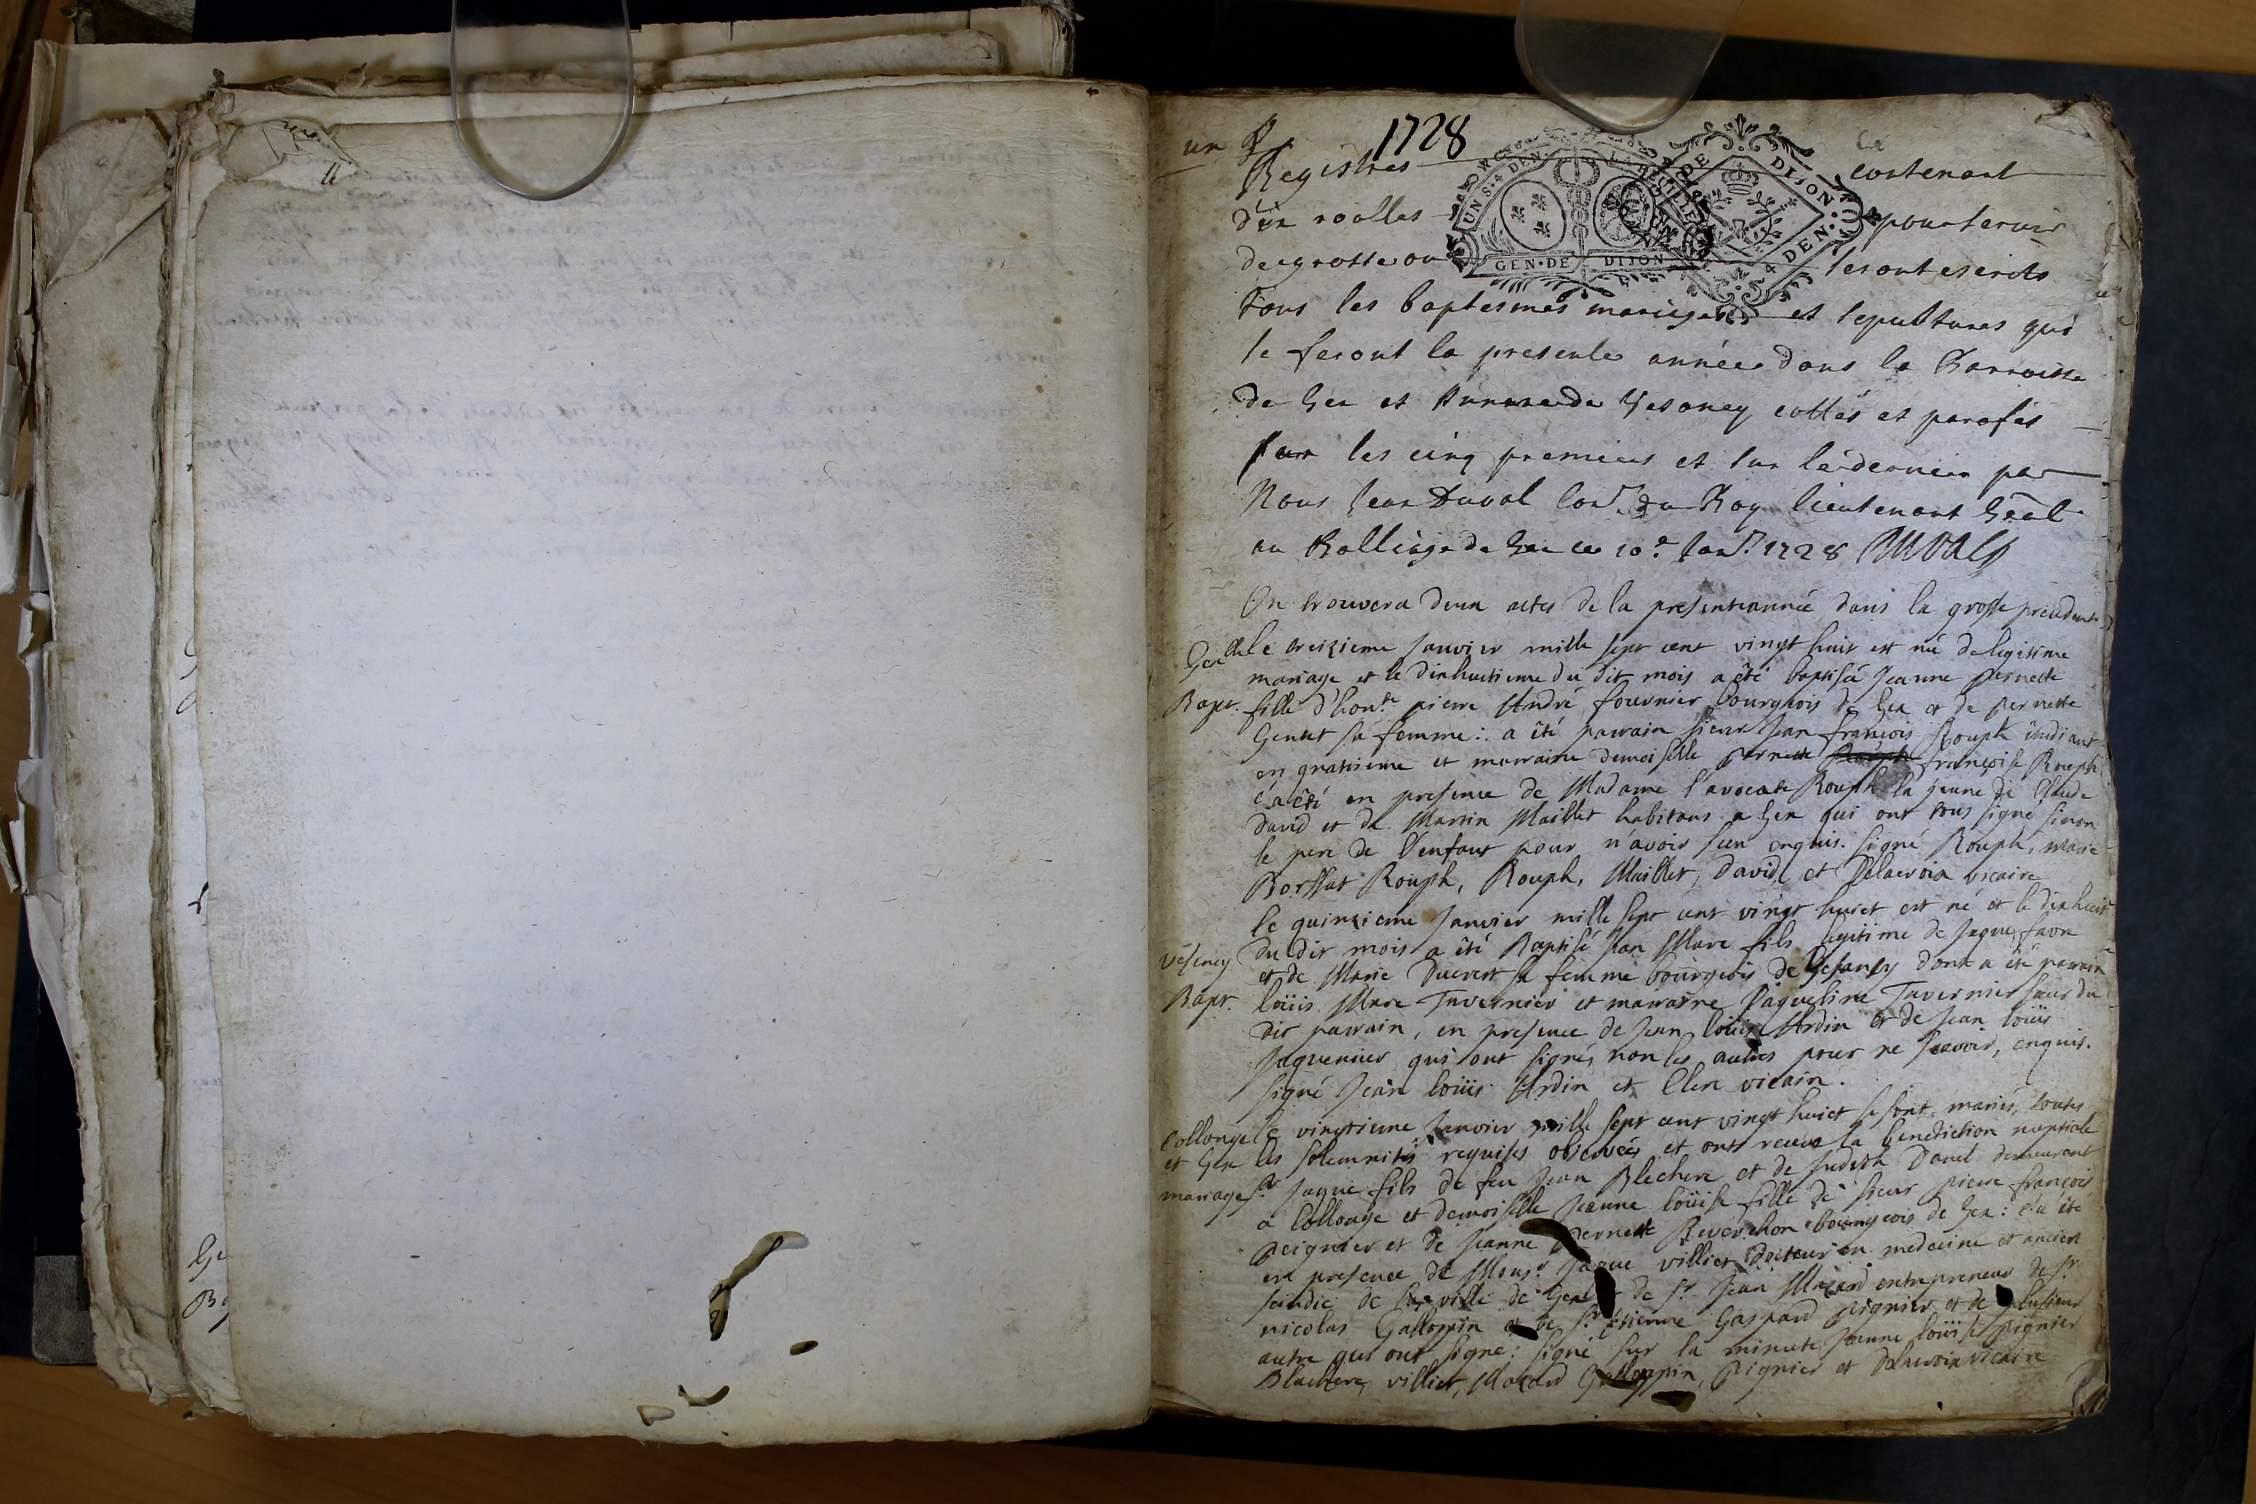 un
1728
Registres contenant
dix roolles pour servir
de grosse ou seront escrits
Tous les baptesmes mariages et sepultures qui
se feront la presente année dans la Parroisse
de Gex et Annexe de Vesancy cottés et parafés
sur les cinq premiers et sur le dernier par
Nous Jean Duval Con.r du Roy lieutenant Gñal
au Balliage de Gex ce 10.e Jan.r 1728 DUVAL
UN S. 4 DEN. LA FEUILLE
GEN. DE DIJON
GEN. DE DIJON. 4 DEN.
On trouvera deux actes de la presente année dans la grosse precedente
Gex
Bapt.
le treizieme Janvier mille sept cent vingt huit est né de legitime
mariage et le dixhuitieme du dit mois a été baptisée Jeanne Pernette
fille d'hon.te pierre André fournier bourgeois de Gex et de pernette
Gentet sa femme : a été parrain sieur Jean françois Rouph étudiant
en gramaire et marraine demoiselle Pernette françoise Rouph
ç'a été en presence de Madame l'avocate Rouph la jeune de Claude
David et de Martin Maillet habitans a Gex qui ont tous signé sinon
le pere de l'enfant pour n'avoir sceu enquis. signé Rouph, marie
Borssat Rouph, Rouph, Maillet, David, et Delacroix vicaire
Vésency
Bapt.
le quinzieme Janvier mille sept cent vingt huict est né et le dixhuit
du dit mois a été Baptisé Jean Marc fils legitime de Jaque favre
et de Marie Ducret sa femme bourgeois de Vesancy dont a été parrain
loüis Marc Tavernier et marraine Jaqueline Tavernier sœur du
dit parrain, en presence de Jean loüis Ardin et de Jean loüis
Jaquenier qui ont signés non les autres pour ne scavoir, enquis.
signé Jean loüis Ardin et vicain.
Collonge
et Gex
mariage
le vingtieme Janvier mille sept cent vingt huict se sont mariés, toutes
les solemnités requises observées et ont receu la benediction nuptiale
s.r Jaque fils de feu Jean Blechere et de Judith Danel demeurant
a Collonge et demoiselle Jeanne loüise fille de sieur pierre françois
Peignier et de Jeanne Pernette Reverchon bourgeois de Gex : ç'a été
en presence de Mons.r Jaque villiet Docteur en medecine et ancien
scindic de la ville de Gex de s.r Jean Macard entrepreneur de s.r
nicolas Galloppin et de s.r étienne Gaspard Pignier et de plusieurs
autre qui ont signé : signé sur la minute Jeanne loüise pignier
Blachere, villiet, Macard Galloppin, Pignier et Delacroix vicaire